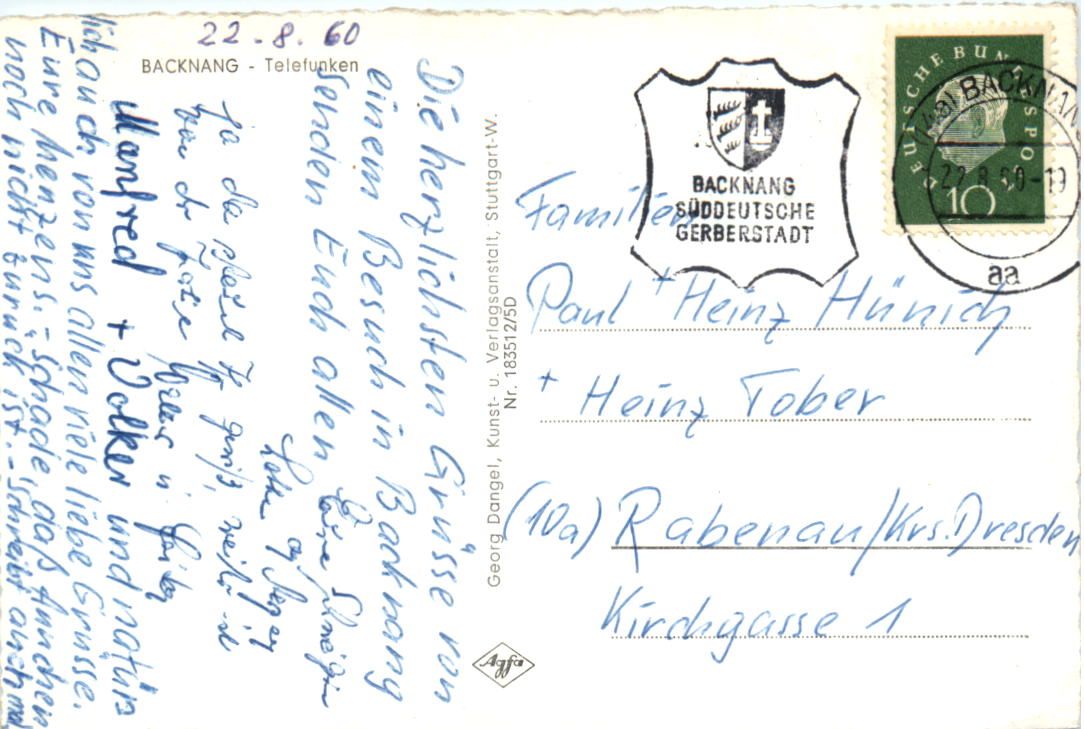 22.8.60
BACKNANG - Telefunken
Die herzlichsten Grüsse von
einem Besuch in Backnang
senden Euch allen
Manfred + Volker und natür
lich auch von uns allen viele liebe Grüsse.
Eure Henzens. - Schade, daß Annchen
noch nicht zurück ist. - Schreibt auch mal
Georg Dangel, Kunst- u. Verlagsanstalt, Stuttgart-W.
Nr. 183512/5D
Agfa
BACKNANG
SÜDDEUTSCHE
GERBERSTADT
DEUTSCHE BUNDESPOST
10
BACKNANG
22.8.60-19
aa
Familien
Paul + Heinz Hünich
+ Heinz Tober
(10a) Rabenau/Krs. Dresden
Kirchgasse 1